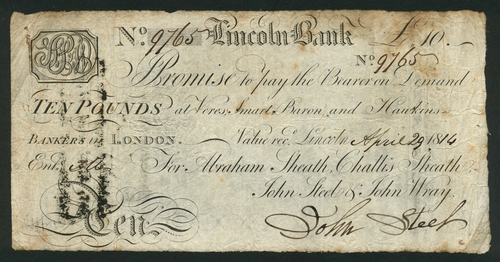 No. 9765 Lincoln Bank £10.—
No. 9765
Promise to pay the Bearer on Demand
TEN POUNDS at Veres, Smart, Baron, and Hawkins
BANKERS IN LONDON. Value recd. Lincoln April 29 1814
Entd. For Abraham Sheath, Challis Sheath,
John Steel & John Wray.
Ten. John Steel